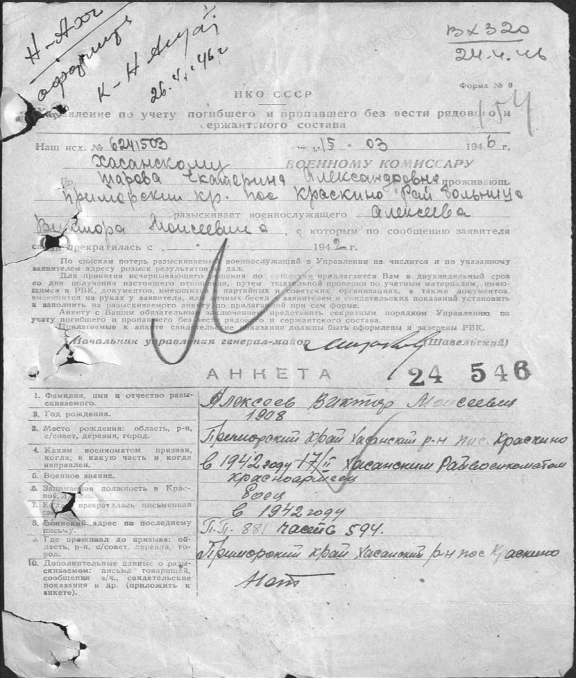 ВХ 320
26.4.46г
24.4.46
НКО СССР
Форма № 9
154
Управление по учету погибшего и пропавшего без вести рядового и
сержантского состава
Наш исх. № 6241503 15 03 1946 г.
Хасанскому ВОЕННОМУ КОМИССАРУ
Екатерина Александровна проживающ.
Приморский кр. пос Краскино Рай больница
разыскивает военнослужащего Алексеева
Виктора Моисеевича, с которым по сообщению заявителя
связь прекратилась с 1942 г.
По спискам потерь разыскиваемый военнослужащий в Управлении не числится и по указанному
заявителем адресу розыск результатов не дал.
Для принятия исчерпывающего решения по существу предлагается Вам в двухнедельный срок
со дня получения настоящего отношения, путем тщательной проверки по учетным материалам, имею-
щимся в РВК, документов, имеющихся в партийных, советских, организациях, а также документов,
имеющихся на руках у заявителя, или личных бесед с заявителем и свидетельских показаний установить
и заполнить на разыскиваемого анкету по прилагаемой при сем форме.
Анкету с Вашим обязательным заключением представить секретным порядком Управлению по
учету погибшего и пропавшего без вести рядового и сержантского состава.
Прилагаемые к анкете свидетельские показания должны быть оформлены и заверены РВК.
Начальник управления генерал-майор (Шавельский)
АНКЕТА 24 546
1. Фамилия, имя и отчество разыскиваемого. Алексеев Виктор Моисеевич
2. Год рождения. 1908
3. Место рождения: область, р-н, с/совет, деревня, город. Приморский край Хасанский р-н пос. Краскино
4. Каким военкоматом призван, когда, в какую часть и когда направлен. в 1942 году 17/II Хасанским Райвоенкоматом
5. Военное звание. Красноармеец
6. Занимаемая должность в Красной Армии. боец
7. Когда прекратилась письменная связь. в 1942 году
8. Воинский адрес по последнему письму. П.П. 881 часть 594.
9. Где проживал до призыва: область, р-н, с/совет, деревня, город. Приморский край Хасанский р-н пос Краскино
10. Дополнительные данные о разыскиваемом: письма товарищей, сообщения в/ч., свидетельские показания и др. (приложить к анкете). Нет